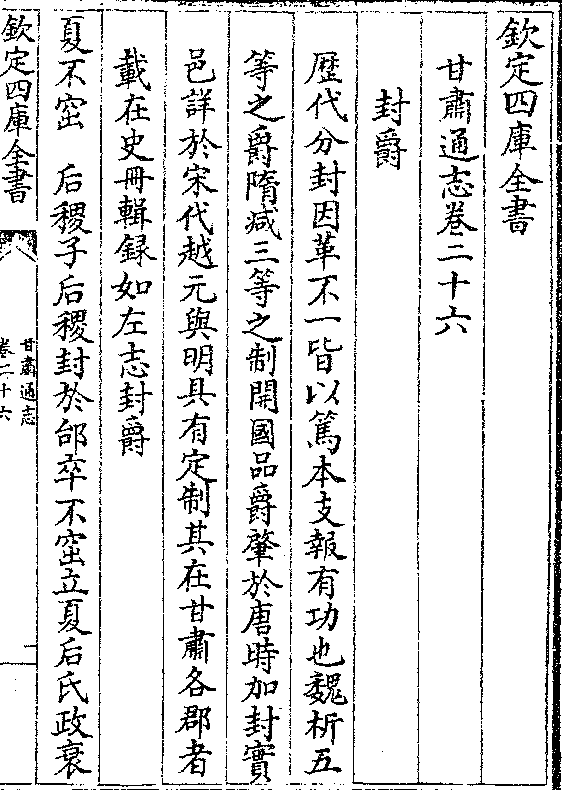 欽定四庫全書
甘肅通志卷二十六
封爵
歴代分封因革不一皆以篤本支報有功也魏析五
等之爵隋减三等之制開國品爵肇於唐時加封實
邑詳於宋代越元與明具有定制其在甘肅各郡者
載在史冊輯録如左志封爵
夏不窋　后稷子后稷封於邰卒不窋立夏后氏政衰
欽定四庫全書
甘肅通志
卷二十六
一